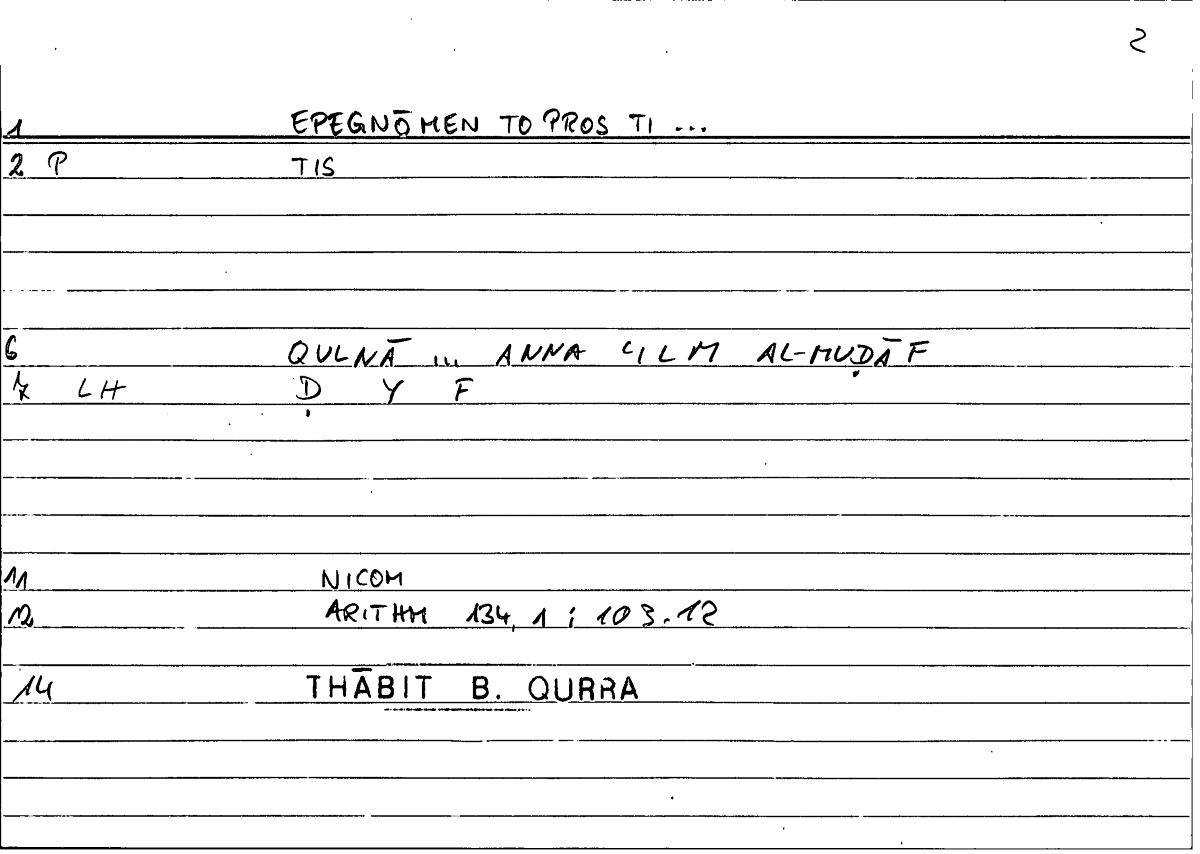 2
1 EPEGNŌMEN TO PROS TI ...
2 P TIS
6 QULNĀ ... ANNA ʿILM AL-MUḌĀF
7 LH Ḍ Y F
11 NICOM
12 ARITHM 134, 1 ; 103.12
14 THĀBIT B. QURRA